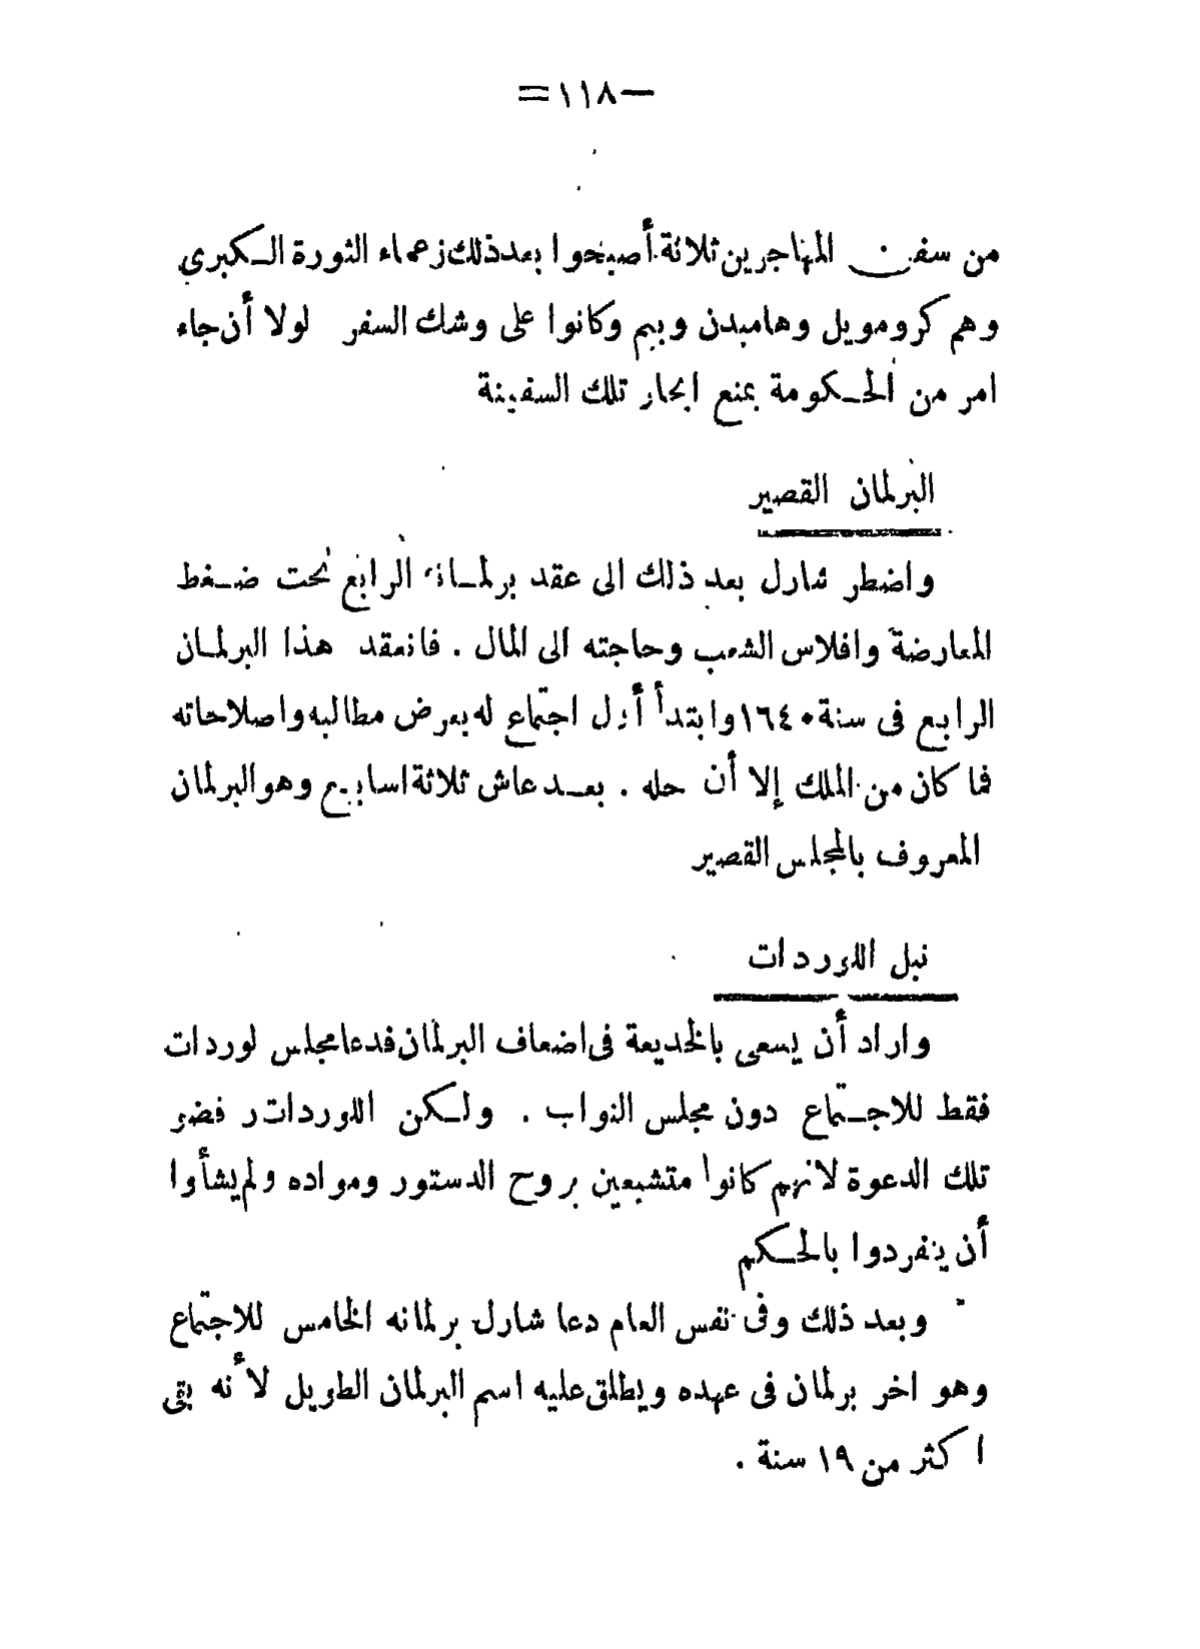 —١١٨=
من سفن المهاجرين ثلاثة أصبحوا بعد ذلك زعماء الثورة الكبرى
وهم كرومويل وهامبدن وبيم وكانوا على وشك السفر لولا أن جاء
امر من الحكومة بمنع ابحار تلك السفينة
البرلمان القصير
واضطر شارل بعد ذلك الى عقد برلمانه الرابع تحت ضغط
المعارضة وافلاس الشعب وحاجته الى المال . فانعقد هذا البرلمان
الرابع فى سنة ١٦٤٠ وابتدأ أول اجتماع له بعرض مطالبه واصلاحاته
فما كان من الملك إلا أن حله . بعد عاش ثلاثة اسابيع وهو البرلمان
المعروف بالمجلس القصير
نبل اللوردات
واراد أن يسعى بالخديعة فى اضعاف البرلمان فدعا مجلس لوردات
فقط للاجتماع دون مجلس النواب . ولكن اللوردات رفضو
تلك الدعوة لانهم كانوا متشبعين بروح الدستور ومواده ولم يشأوا
أن ينفردوا بالحكم
وبعد ذلك وفى نفس العام دعا شارل برلمانه الخامس للاجتماع
وهو اخر برلمان فى عهده ويطلق عليه اسم البرلمان الطويل لأنه بقى
اكثر من ١٩ سنة .